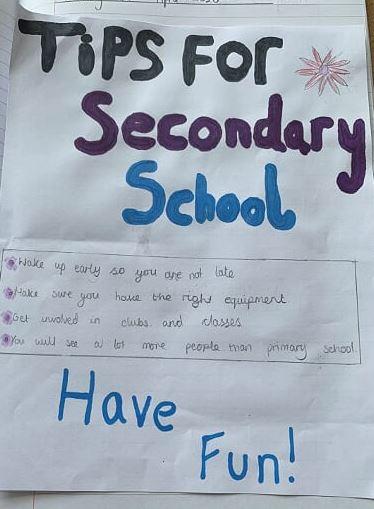 TiPS FOr
Secondary
School
Wake up early so you are not late
Make sure you have the right equipment
Get involved in clubs and classes
You will see a lot more people than primary school.
Have
Fun!